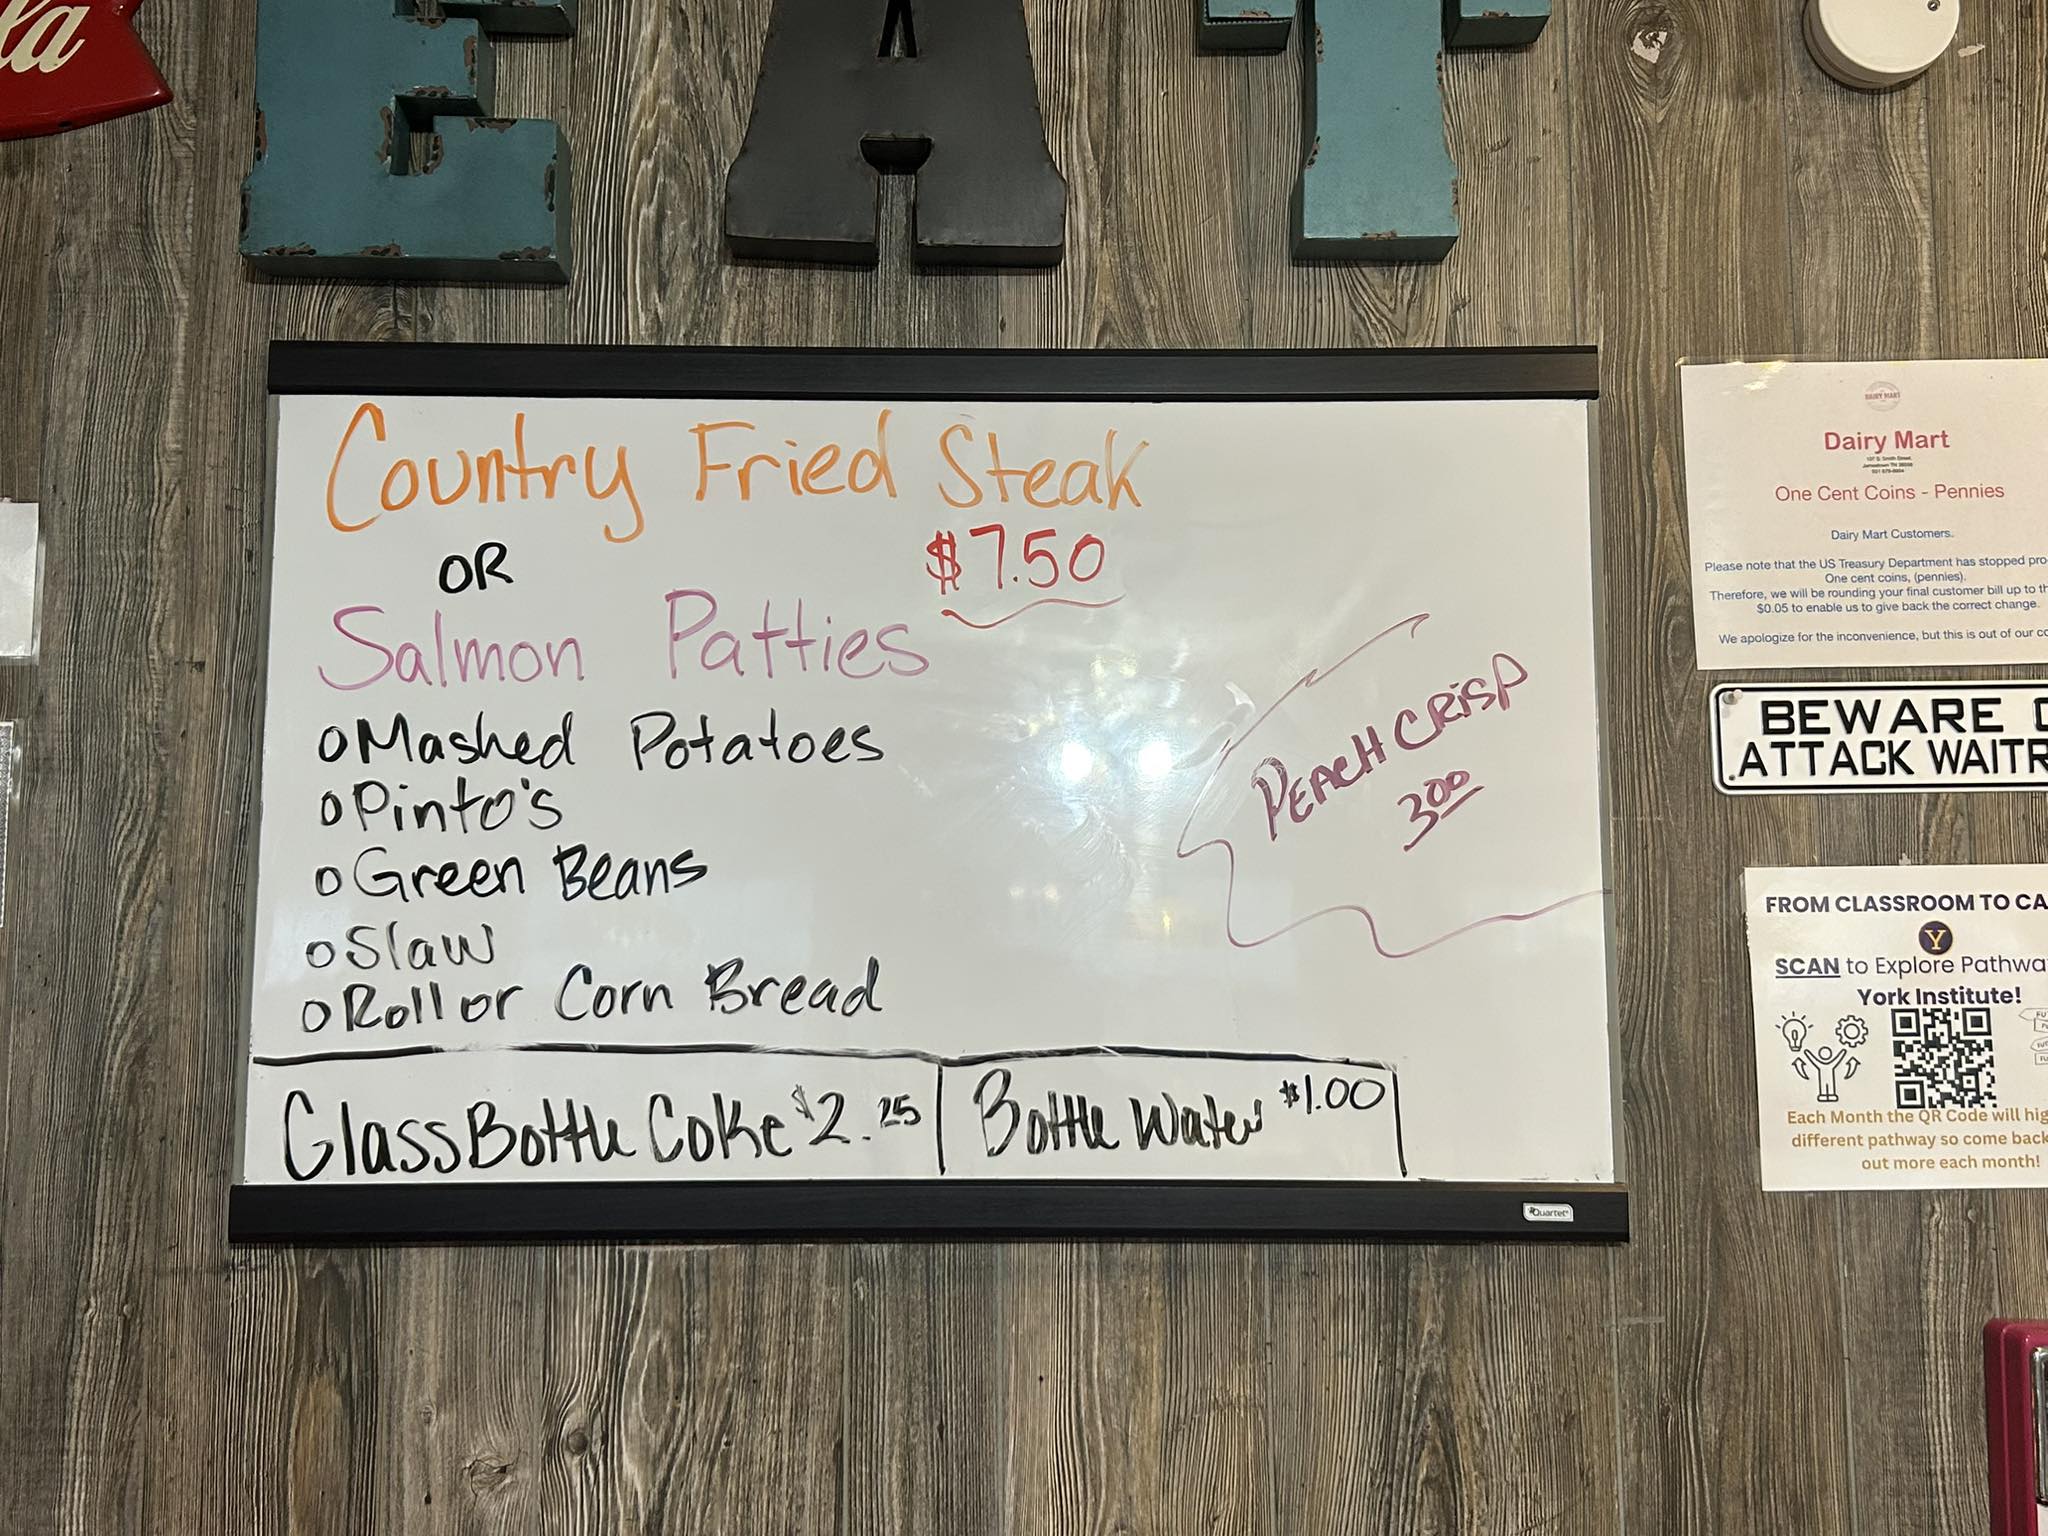 la
EAT
Country Fried Steak
OR
$7.50
Salmon Patties
Mashed Potatoes
Pinto's
Green Beans
Slaw
Roll or Corn Bread
PEACH CRISP
3.00
Glass Bottle Coke $2.25
Bottle Water $1.00
Quartet
DAIRY MART
Dairy Mart
Jamestown TN
One Cent Coins - Pennies
Dairy Mart Customers.
Please note that the US Treasury Department has stopped pro
One cent coins, (pennies).
Therefore, we will be rounding your final customer bill up to th
$0.05 to enable us to give back the correct change.
We apologize for the inconvenience, but this is out of our co
BEWARE
ATTACK WAITR
FROM CLASSROOM TO CA
Y
SCAN to Explore Pathwa
York Institute!
Each Month the QR Code will hig
different pathway so come back
out more each month!